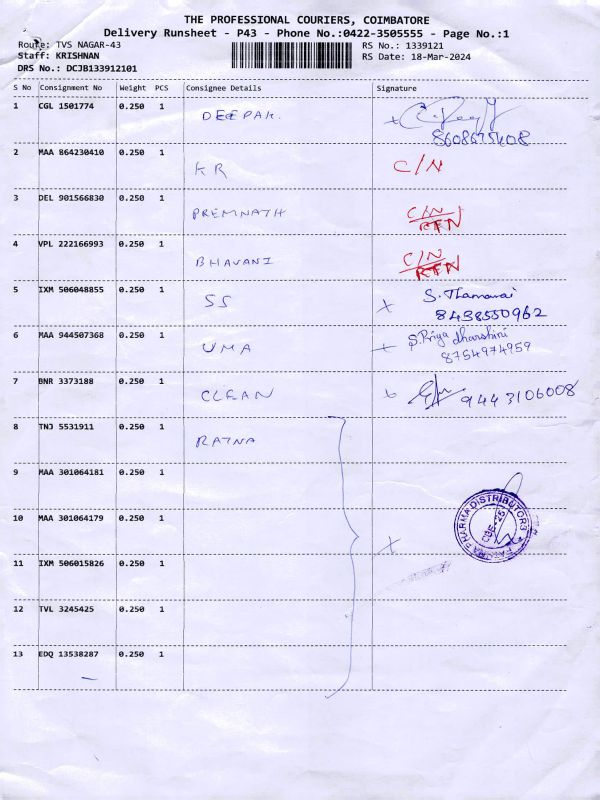 THE PROFESSIONAL COURIERS, COIMBATORE
Delivery Runsheet - P43 - Phone No.:0422-3505555 - Page No.:1
Route: TVS NAGAR-43 RS No.: 1339121
Staff: KRISHNAN RS Date: 18-Mar-2024
DRS No.: DCJB133912101
S No Consignment No Weight PCS Consignee Details Signature
1 CGL 1501774 0.250 1 DEEPAK.
8608675408
2 MAA 864230410 0.250 1 KR C/N
3 DEL 901566830 0.250 1 PREMNATH C/N
RTN
4 VPL 222166993 0.250 1 BHAVANI C/N
RTN
5 IXM 506048855 0.250 1 SS S. Thamarai
8438550962
6 MAA 944507368 0.250 1 UMA S. Priya dharshini
8754974959
7 BNR 3373188 0.250 1 CLEAN 9443106008
8 TNJ 5531911 0.250 1 RATNA
9 MAA 301064181 0.250 1
10 MAA 301064179 0.250 1
PHARMA DISTRIBUTORS
CBE-25
11 IXM 506015826 0.250 1
12 TVL 3245425 0.250 1
13 EDQ 13538287 0.250 1